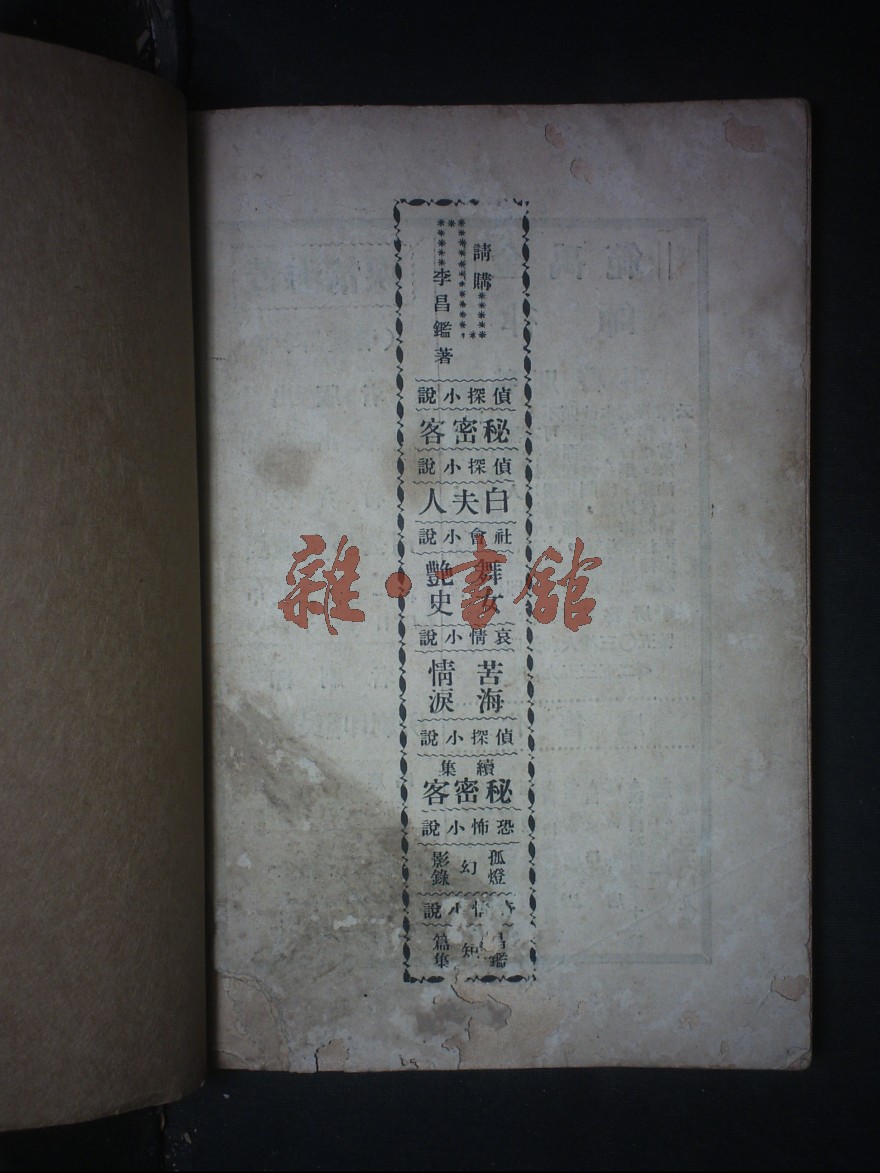 請購
李昌鑑著
偵探小說
秘密客
偵探小說
白夫人
社會小說
舞女艷史
哀情小說
苦海情淚
偵探小說
續集
秘密客
恐怖小說
孤燈幻影錄
情小說
昌鑑篇集
雜·書館